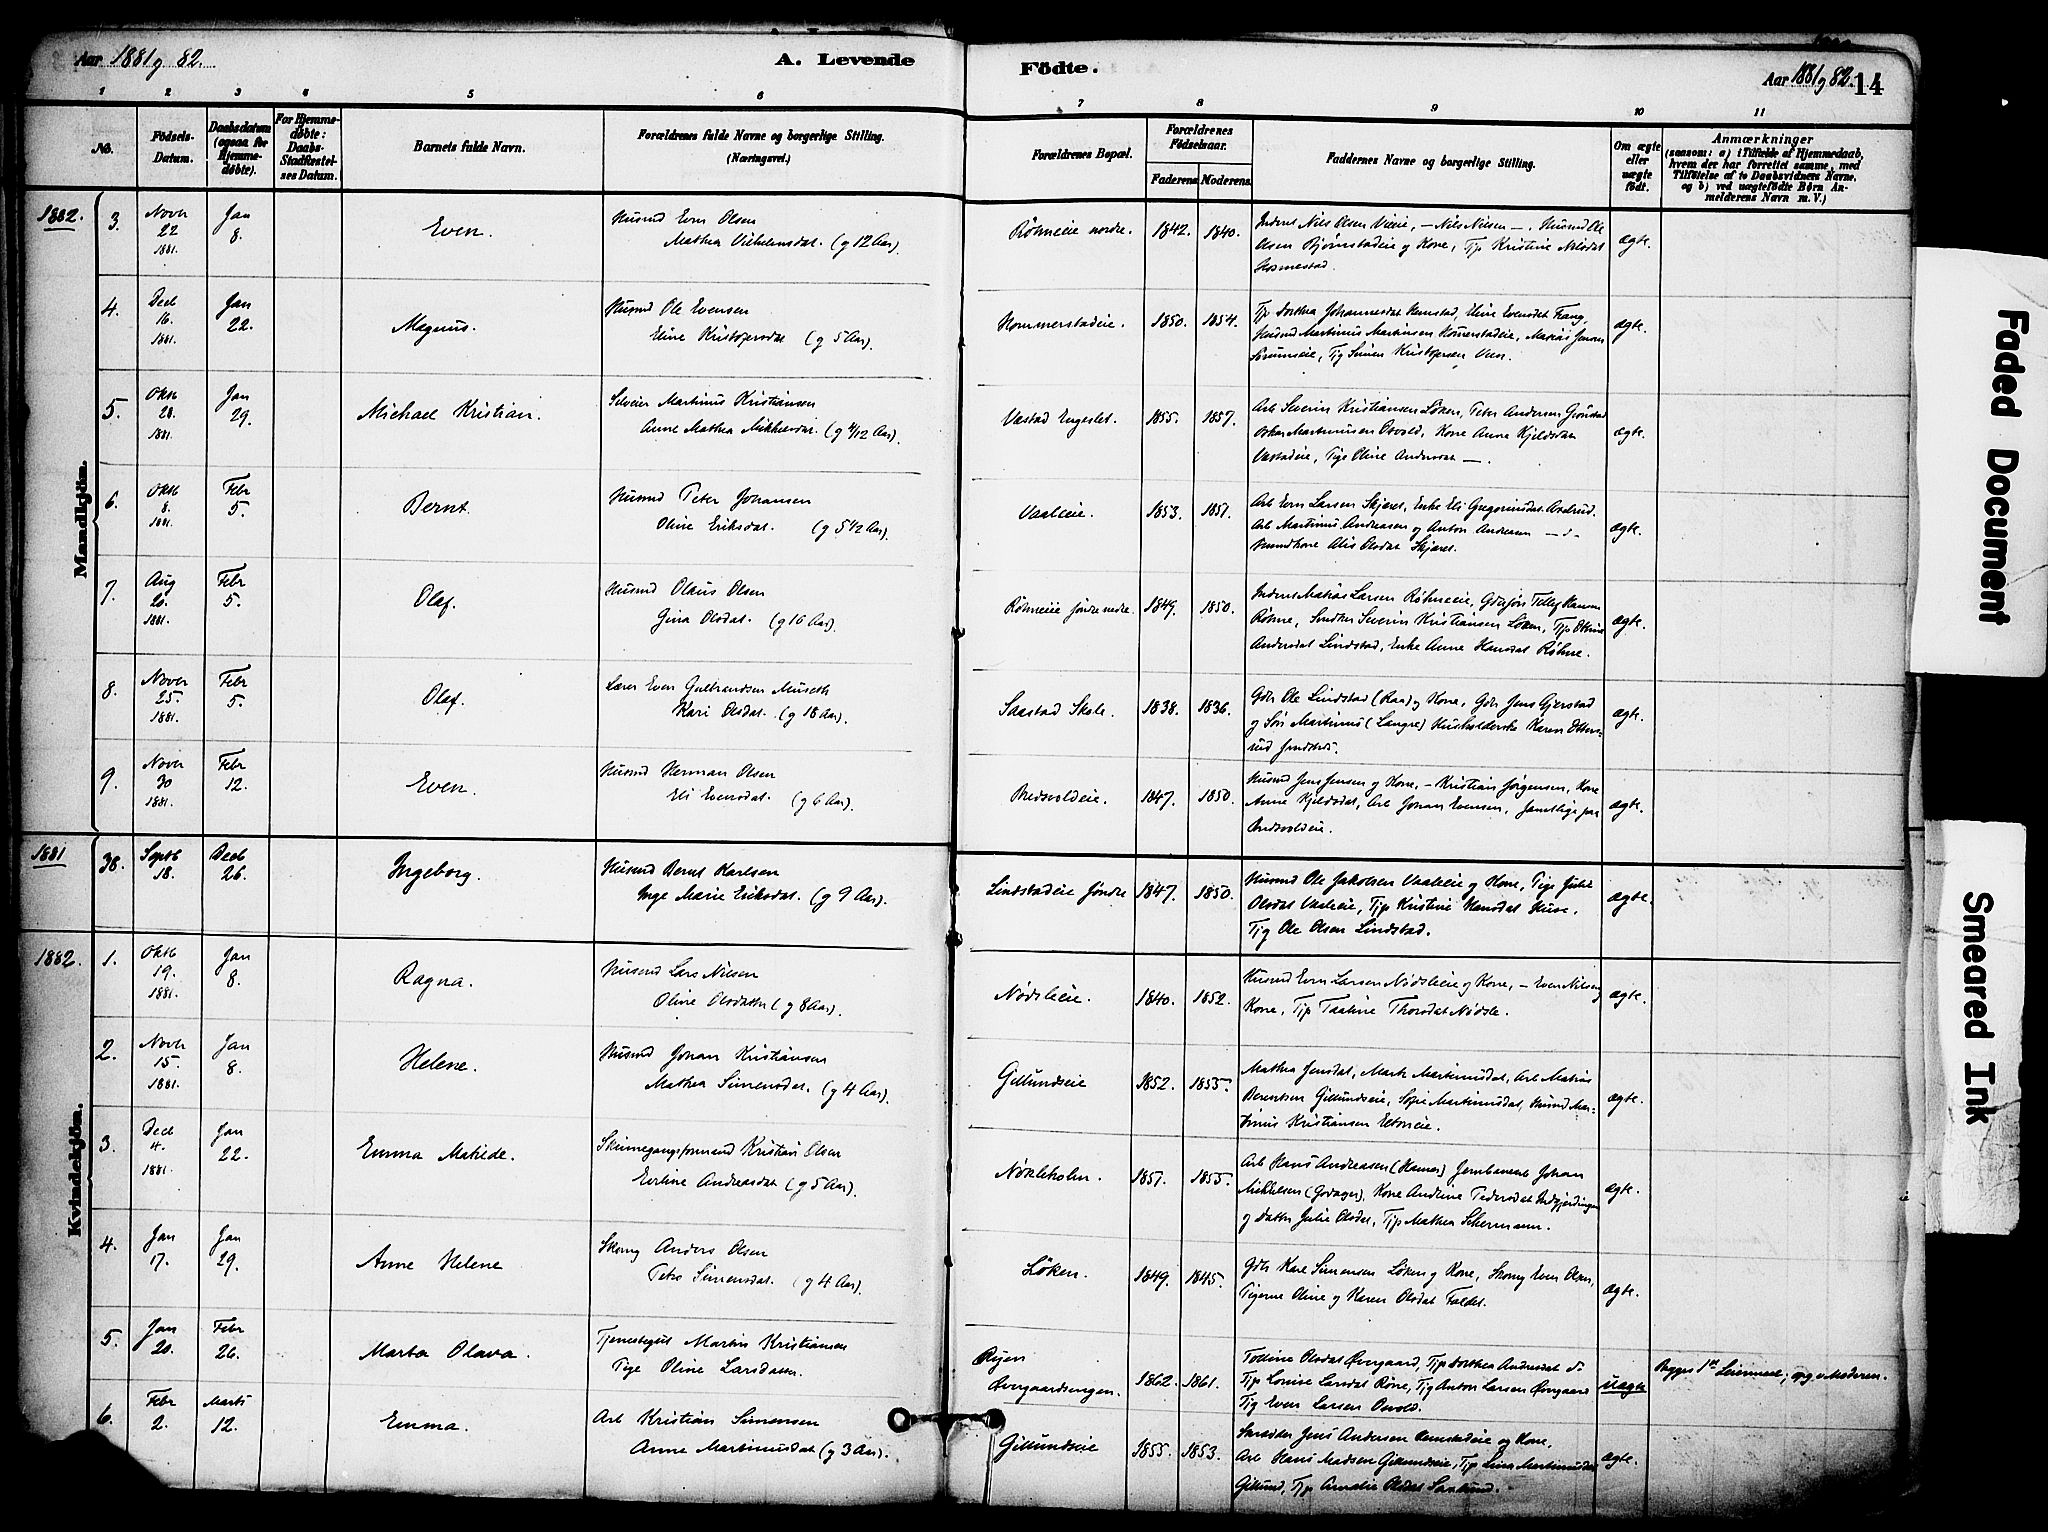 Aar 1881 og 82.
A. Levende
Födte.
Aar 1881 og 82. 14
1 2 3 4 5 6 7 8 9 10 11
No.
Fødsels-Datum.
Daabsdatum (ogsaa for Hjemmedøbte).
For Hjemmedøbte: Daabs-Stadfæstelses Datum.
Barnets fulde Navn.
Forældrenes fulde Navne og borgerlige Stilling.
(Næringsvei.)
Forældrenes Bopæl.
Forældrenes Fødselsaar.
Faderens Moderens.
Faddernes Navne og borgerlige Stilling.
Om ægte eller uægte født.
Anmærkninger
(saasom: a) i Tilfælde af Hjemmedaab, hvem der har forrettet samme, med Tilføielse af to Daabsvidners Navne. og b) ved uægtefødte Børn Anmelderens Navn m. V.)
Mandkjön.
1882.
3. Novr 22 1881. Jan 8. Even.
Husmd Even Olsen
Mathea Vilhelmsdat. (g 12 Aar).
Röhneeie nordre. 1842. 1840.
Inderst Nils Olsen Vieie, – Nils Nilsen –. Husmd Ole
Olsen Bjørnstadeie og Kone, Tjp Kristine Nilsdat
Kosmestad.
ægte.
4. Decb 16. 1881. Jan 22. Magnus.
Husmd Ole Evensen
Eline Kristofersdat (g 5 Aar).
Kommerstadeie. 1850. 1854.
Tjp Dorthea Johannesdat Hemstad, Eline Evensdat Frang,
Husmd Martinus Martinsen Komerstadeie, Matias Jensen
Tjg Simen Kristofersen Veen.
ægte.
5. Oktb 28. 1881. Jan 29. Michael Kristian.
Selveier Martinus Kristiansen
Anne Mathea Mikkelsdat. (g 4/12 Aar).
Vastad Engeslet. 1855. 1857.
Arb Severin Kristiansen Løken, Peter Andersen
Oskar Martinusen Osvold, Kone Anne Kjeldsdat
Vastadeie, Pige Oline Andersdat –.
ægte.
6. Oktb 8. 1881. Febr 5. Bernt.
Husmd Peter Johansen
Oline Eriksdat. (g 5 1/2 Aar).
Vaaleeie. 1853. 1851.
Arb Even Larsen Skjæret, Enke Eli Gregoriusdat Axelrud.
Arb Martinus Andreasen og Anton Andreasen – d –
Husmdkone Alis Olsdat Skjæret.
ægte.
7. Aug 20. 1881. Febr 5. Olaf.
Husmd Olaus Olsen
Gina Olsdat. (g 16 Aar).
Röhneeie søndre nedre. 1849. 1850.
Inderst Matias Larsen Röhneeie, Gdrsøn Tellef Hansen
Röhne, Smedker Severin Kristiansen Löken, Tjp Oline
Andersdat Lindstad, Enke Anne Hansdat Röhne.
ægte.
8. Novr 25. 1881. Febr 5. Olaf.
Lærer Even Gulbrandsen Museth
Kari Olsdat. (g 18 Aar).
Saastad Skole. 1838. 1836.
Gdr Ole Lindstad (Raa) og Kone, Gdr Jens Gjerstad
og Søn Martinus (Langre) Husholderske Karen Otters-
rud
ægte.
9. Novr 30 1881. Febr 12. Even.
Husmd Herman Olsen
Eli Evensdat. (g 6 Aar).
1847. 1850.
Husmd Jens Jensen og Kone, – Kristian Jørgensen, Kone
Anne Kjeldsdat, Arb Johan Evensen, samtlige paa
ægte.
1881
38. Septb 18. Decb 26. Ingeborg.
Husmd Bernt Karlsen
Inge Marie Eriksdat. (g 9 Aar).
Lindstadeie søndre 1847. 1850.
Husmd Ole Jakobsen Vaaleeie og Kone, Pige Julie
Olsdat Vaaleeie, Tjp Kristine Hansdat Huse.
Tjg Ole Olsen Lindstad.
ægte.
Kvindekjön.
1882.
1. Oktb 19. 1881. Jan 8. Ragna.
Husmd Lars Nilsen
Oline Olsdatter (g 8 Aar).
Nødsleeie. 1840. 1852.
Husmd Even Larsen Nødsleeie og Kone, – Even Nilsen og
Kone, Tjp Taaline Thorsdat Nødsle.
ægte.
2. Novr 15. 1881. Jan 8. Helene.
Husmd Johan Kristiansen
Mathea Simensdat. (g 4 Aar).
Gillundseie 1852. 1855.
Mathea Jensdat, Marte Martinusdat, Arb Matias
Berentsen Gillundseie, Sofie Martinusdat, Husmd Mar-
tinus Kristiansen Eltoneie.
ægte.
3. Decb 4. 1881. Jan 22. Emma Matilde.
Skinnegangsformand Kristian Olsen
Eveline Andreasdat (g 5 Aar).
Nökleholm. 1851. 1855.
Arb Hans Andreasen (Hamar) Jernbanearb Johan
Mikkelsen (Godager), Kone Andrine Pedersdat
og Datter Julie Olsdat, Tjp Mathea Schermann.
ægte.
4. Jan 17. Jan 29. Anne Helene
Skomg Anders Olsen
Petra Simensdat. (g 4 Aar).
Löken. 1849. 1845.
Gdr Kare Simensen Löken og Kone, Skomg Even Olsen,
Pigerne Oline og Karen Olsdat Faldet.
ægte.
5. Jan 20. Febr 26. Marta Olava.
Tjenestegut Martin Kristiansen
Pige Oline Larsdatter.
Ryen
Øvergaardsengen. 1862. 1861.
Olsdat Øvergaard, Tjp Dorthea Andersdat do
Tjp Lovise Larsdat Röne, Tjg Anton Larsen Øvergaard
Tjg Even Larsen Osvold.
uægte
Begges 1ste Leiermaal; opg. Moderen.
6. Febr 2. Marts 12. Emma.
Arb Kristian Simensen
Anne Martinusdat (g 3 Aar).
Gillundseie 1855. 1853.
Jens Andersen Hemstadeie og Kone,
Arb Hans Madsen Gillundseie, Tjp Lina Martinusdat
Gillund, Tjp Amalie Olsdat
ægte.
Faded Document
Smeared Ink